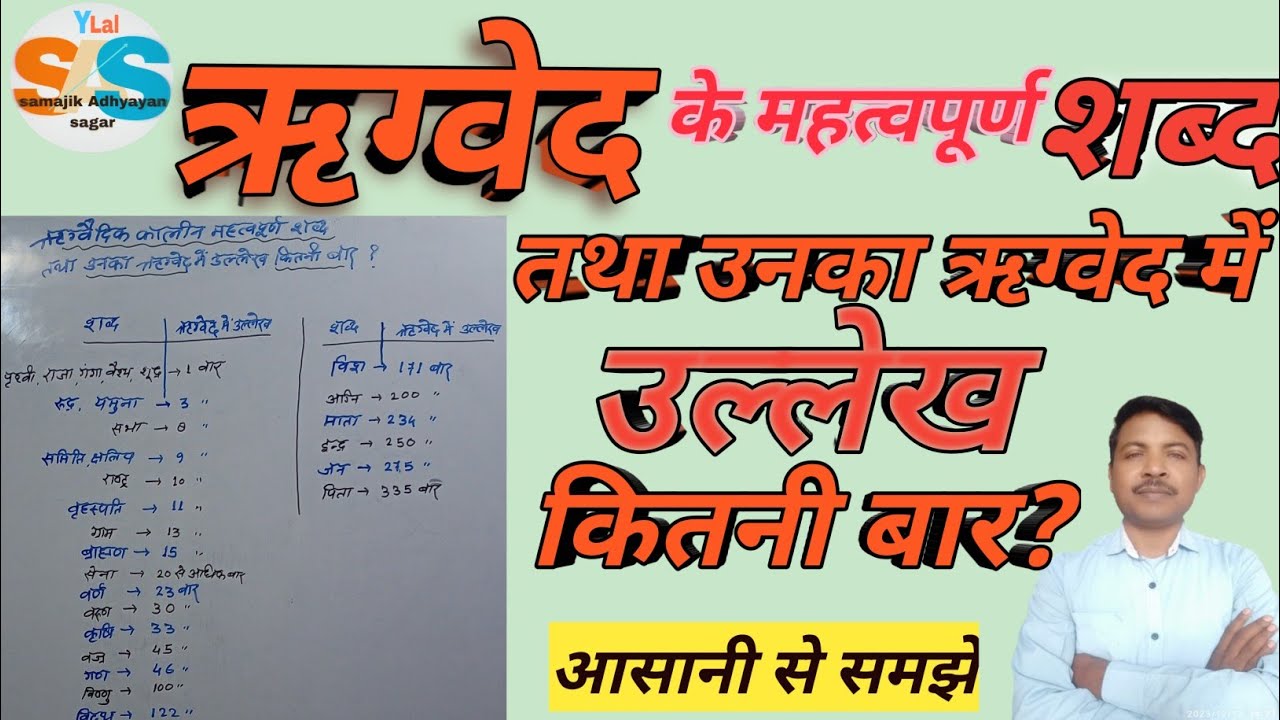 YLal
SAS
samajik Adhyayan
sagar
ऋग्वेद के महत्वपूर्ण शब्द
तथा उनका ऋग्वेद में
उल्लेख
कितनी बार?
आसानी से समझे
ऋग्वैदिक कालीन महत्वपूर्ण शब्द
तथा उनका ऋग्वेद में उल्लेख कितनी बार ?
शब्द ऋग्वेद में उल्लेख
पृथ्वी, राजा, गंगा, वैश्य, शूद्र → 1 बार
रुद्र, यमुना → 3 "
सभा → 8 "
समिति, क्षत्रिय → 9 "
राष्ट्र → 10 "
वृहस्पति → 11 "
ग्राम → 13 "
ब्राह्मण → 15 "
सेना → 20 से अधिक बार
वर्ण → 23 बार
वरुण → 30 "
कृषि → 33 "
वज्र → 45 "
गण → 46 "
विष्णु → 100 "
विदथ → 122 "
शब्द ऋग्वेद में उल्लेख
विश → 171 बार
अग्नि → 200 "
माता → 234 "
इन्द्र → 250 "
जन → 275 "
पिता → 335 बार